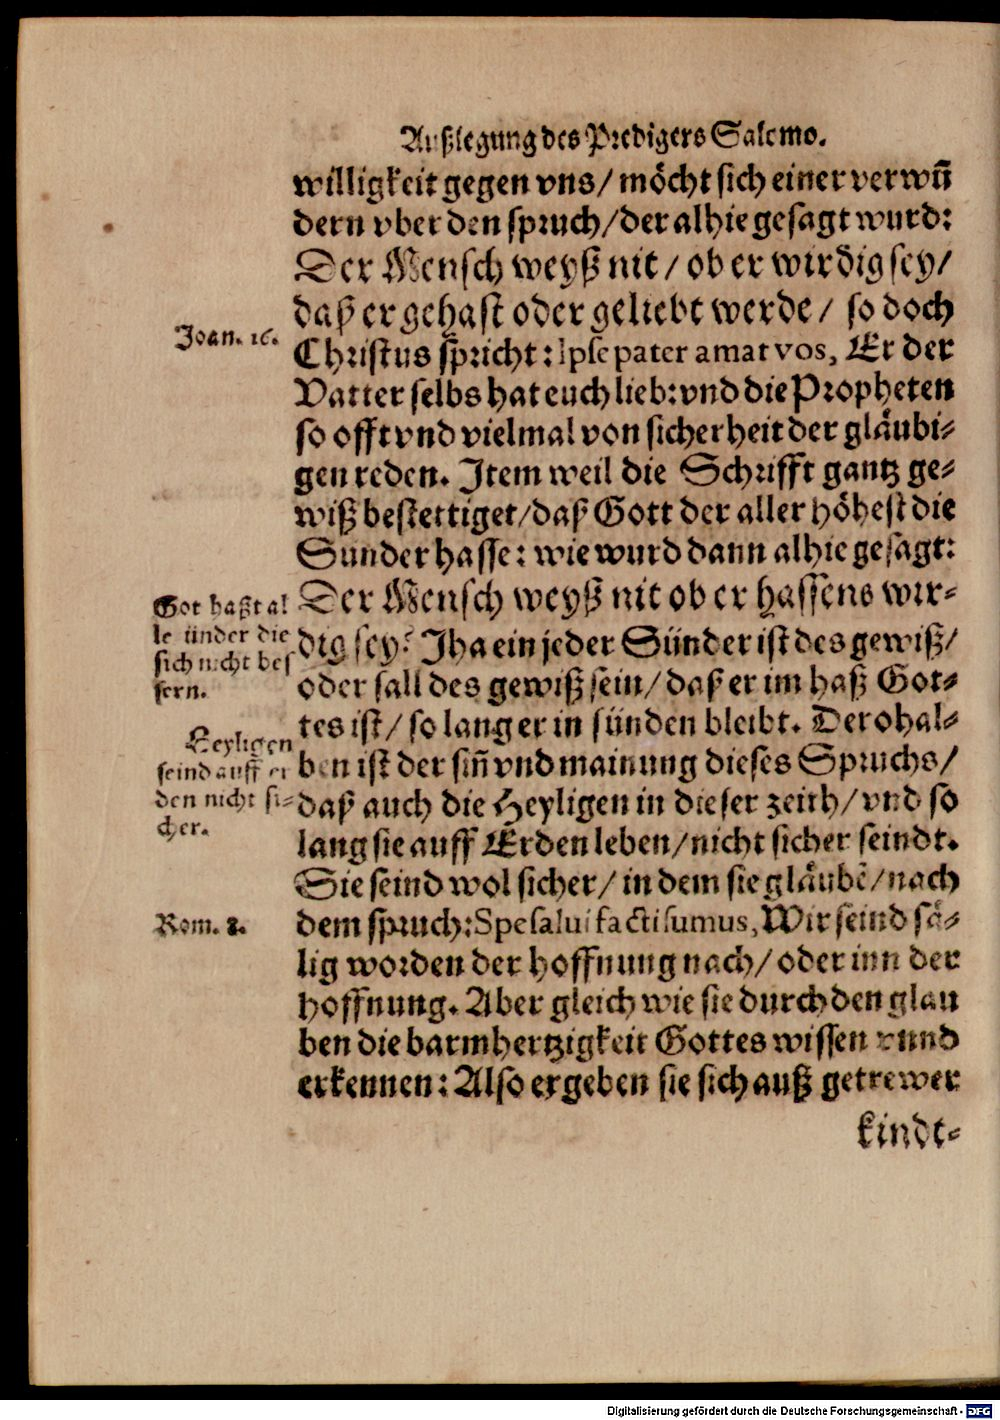 Außlegung des Predigers Salomo.
willigkeit gegen vns/ möcht sich einer verwūn
dern vber den spruch/ der alhie gesagt wurd:
Der Mensch weyß nit/ ob er wirdig sey/
daß er gehast oder geliebt werde/ so doch
Joan. 16.
Christus spricht: Ipse pater amat vos, Er der
Vatter selbs hat euch lieb: vnd die Propheten
so offt vnd vielmal von sicherheit der gläubi⸗
gen reden. Item weil die Schrifft gantz ge⸗
wiß bestettiget/ daß Gott der aller höhest die
Sunder hasse: wie wurd dann alhie gesagt:
Der Mensch weyß nit ob er hassens wir⸗
dig sey? Jha ein jeder Sünder ist des gewiß/
oder sall des gewiß sein/ daß er im haß Got⸗
tes ist/ so lang er in sünden bleibt. Derohal⸗
ben ist der siñ vnd mainung dieses Spruchs/
daß auch die Heyligen in dieser zeith/ vnd so
lang sie auff Erden leben/ nicht sicher seindt.
Sie seind wol sicher/ in dem sie gläubē/ nach
dem spruch: Spe salui facti sumus, Wir seind sä⸗
lig worden der hoffnung nach/ oder inn der
hoffnung. Aber gleich wie sie durch den glau
ben die barmhertzigkeit Gottes wissen vnnd
erkennen: Also ergeben sie sich auß getrewer
kindt⸗
Got haßt al
le ünder die
sich nicht bes
sern.
Heyligen
seind auff er
den nicht si⸗
cher.
Rom. 8.
Digitalisierung gefördert durch die Deutsche Forschungsgemeinschaft - DFG